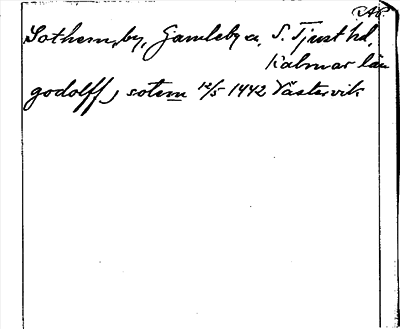 RAP.
Sothem, by, Gamleby sn, S. Tjust hd,
Kalmar län
godolff j sotem 12/5 1442 Västervik